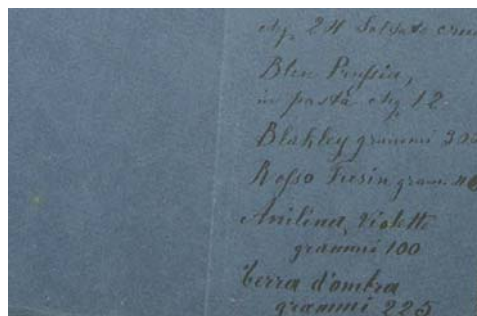 chg. 24 Solfato
Bleu Prussia,
in pasta chg. 12
Blakley grammi 30
Rosso Tresin gram. 40
Anilina, Violetto
grammi 100
terra d'ombra
grammi 225